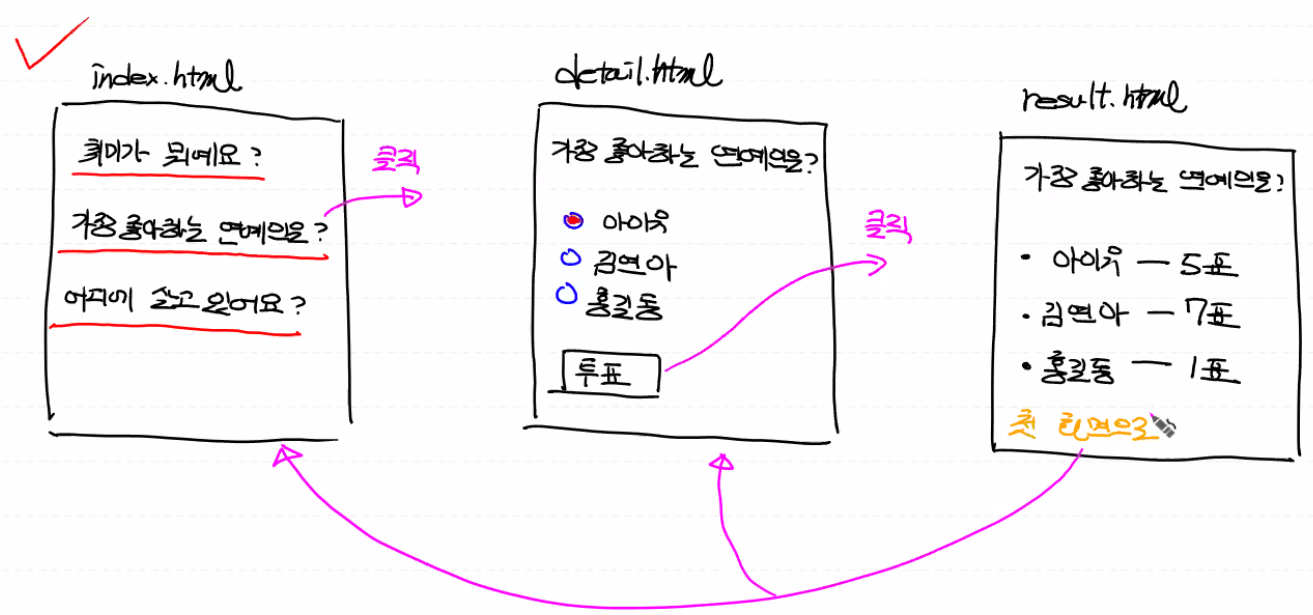 index.html
취미가 뭐예요?
가장 좋아하는 연예인은?
어디에 살고 있어요?
클릭
detail.html
가장 좋아하는 연예인은?
아이유
김연아
홍길동
투표
클릭
result.html
가장 좋아하는 연예인은?
• 아이유 — 5표
• 김연아 — 7표
• 홍길동 — 1표
첫 화면으로